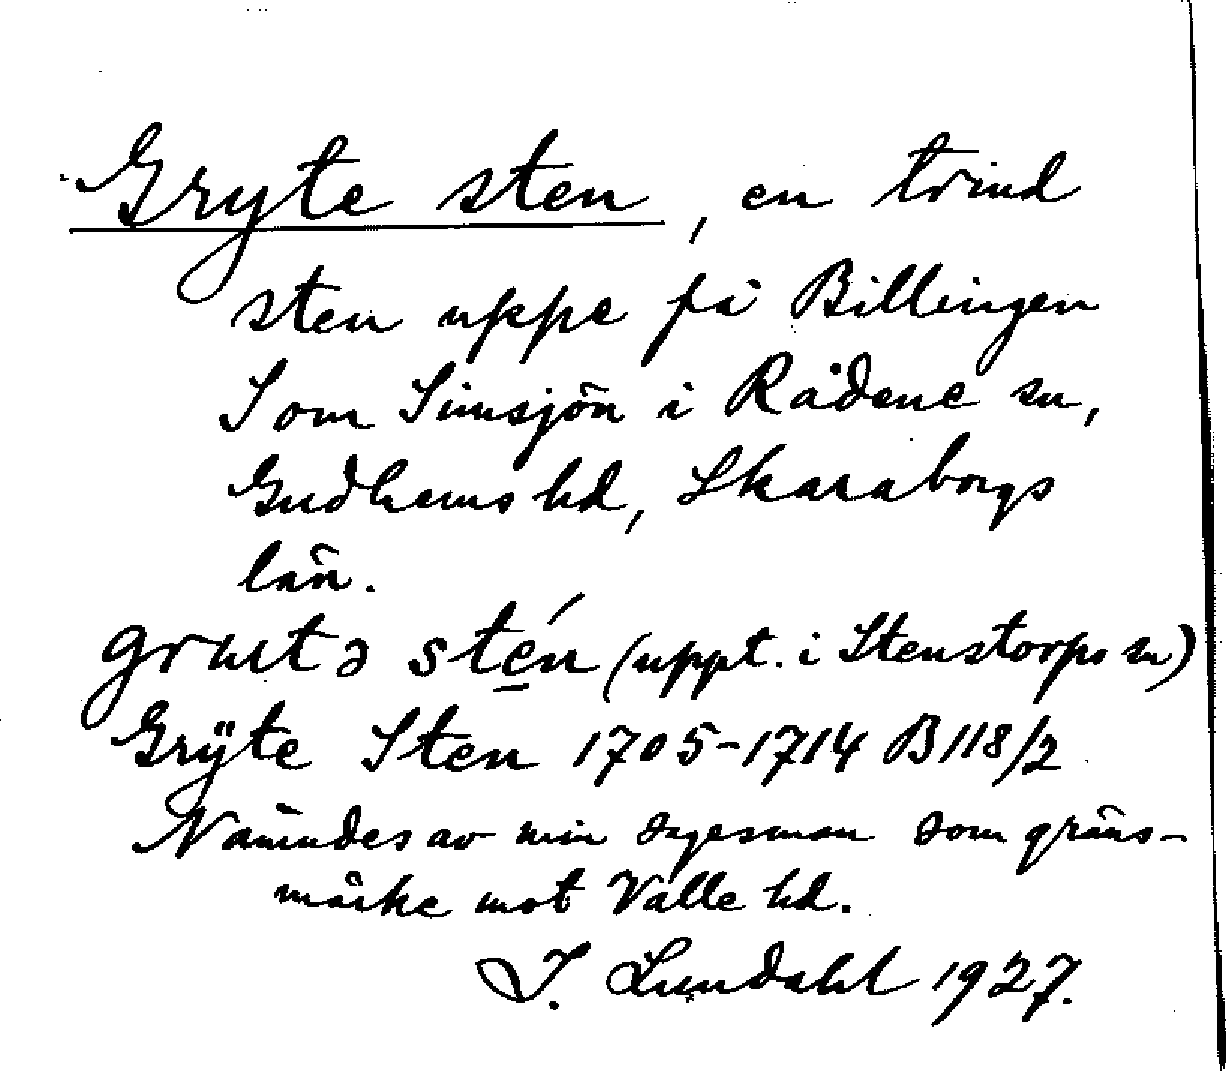 Gryte sten, en trind
sten uppe på Billingen
S om Simsjön i Rådene sn,
Gudhems hd, Skaraborgs
län.
sten (uppt. i Stenstorps sn)
Grÿte Sten 1705-1714 B118/2
Nämndes av min sagesman som gräns-
märke mot Valle hd.
I. Lundahl 1927.